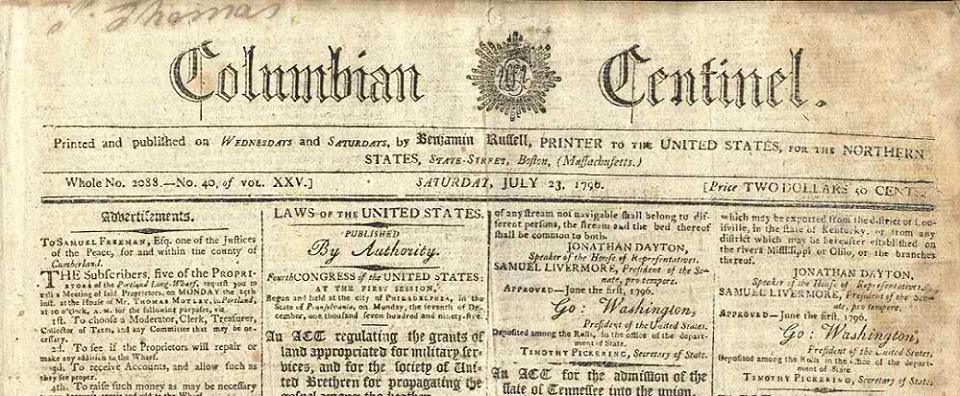 Thomas
Columbian Centinel.
Printed and published on WEDNESDAYS and SATURDAYS, by Benjamin Russell, PRINTER TO THE UNITED STATES, FOR THE NORTHERN
STATES, STATE-STREET, Boston, (Massachusetts.)
Whole No. 2088.—No. 40, of VOL. XXV.] SATURDAY, JULY 23, 1796. [Price TWO DOLLARS 50 CENTS.
Advertisements.
TO SAMUEL FREEMAN, Esq. one of the Justices
of the Peace, for and within the county of
Cumberland.
THE Subscribers, five of the PROPRI-
ETORS of the Portland Long-Wharf, request you to
call a Meeting of said Proprietors, on MONDAY the 25th
inst. at the House of Mr. THOMAS MOTLEY, in Portland,
at 10 o'clock, A. M. for the following purposes, viz.
1st. To choose a Moderator, Clerk, Treasurer,
Collector of Taxes, and any Committee that may be ne-
cessary.
2d. To see if the Proprietors will repair or
make any addition to the Wharf.
3d. To receive Accounts, and allow such as
they see proper.
4th. To raise such money as may be necessary
LAWS OF THE UNITED STATES.
PUBLISHED
By Authority.
Fourth CONGRESS of the UNITED STATES:
AT THE FIRST SESSION,
Begun and held at the city of PHILADELPHIA, in the
State of Pennsylvania, on Monday, the seventh of De-
cember, one thousand seven hundred and ninety-five.
An ACT regulating the grants of
land appropriated for military ser-
vices, and for the society of Uni-
ted Brethren for propagating the
gospel among the heathen.
of any stream not navigable shall belong to dif-
ferent persons, the stream and the bed thereof
shall be common to both.
JONATHAN DAYTON,
Speaker of the House of Representatives.
SAMUEL LIVERMORE, President of the Se-
nate, pro tempore.
APPROVED—June the first, 1796.
Go: Washington,
President of the United States.
Deposited among the Rolls, in the office of the depart-
ment of State.
TIMOTHY PICKERING, Secretary of State.
An ACT for the admission of the
state of Tennessee into the union.
which may be exported from the district of Lou-
isville, in the state of Kentucky, or from any
district which may be hereafter established on
the rivers Mississippi or Ohio, or the branches
thereof.
JONATHAN DAYTON,
Speaker of the House of Representatives.
SAMUEL LIVERMORE, President of the Sen-
ate, pro tempore.
APPROVED—June the first, 1796.
Go: Washington,
President of the United States.
Deposited among the Rolls in the office of the depart-
ment of State.
TIMOTHY PICKERING, Secretary of State.